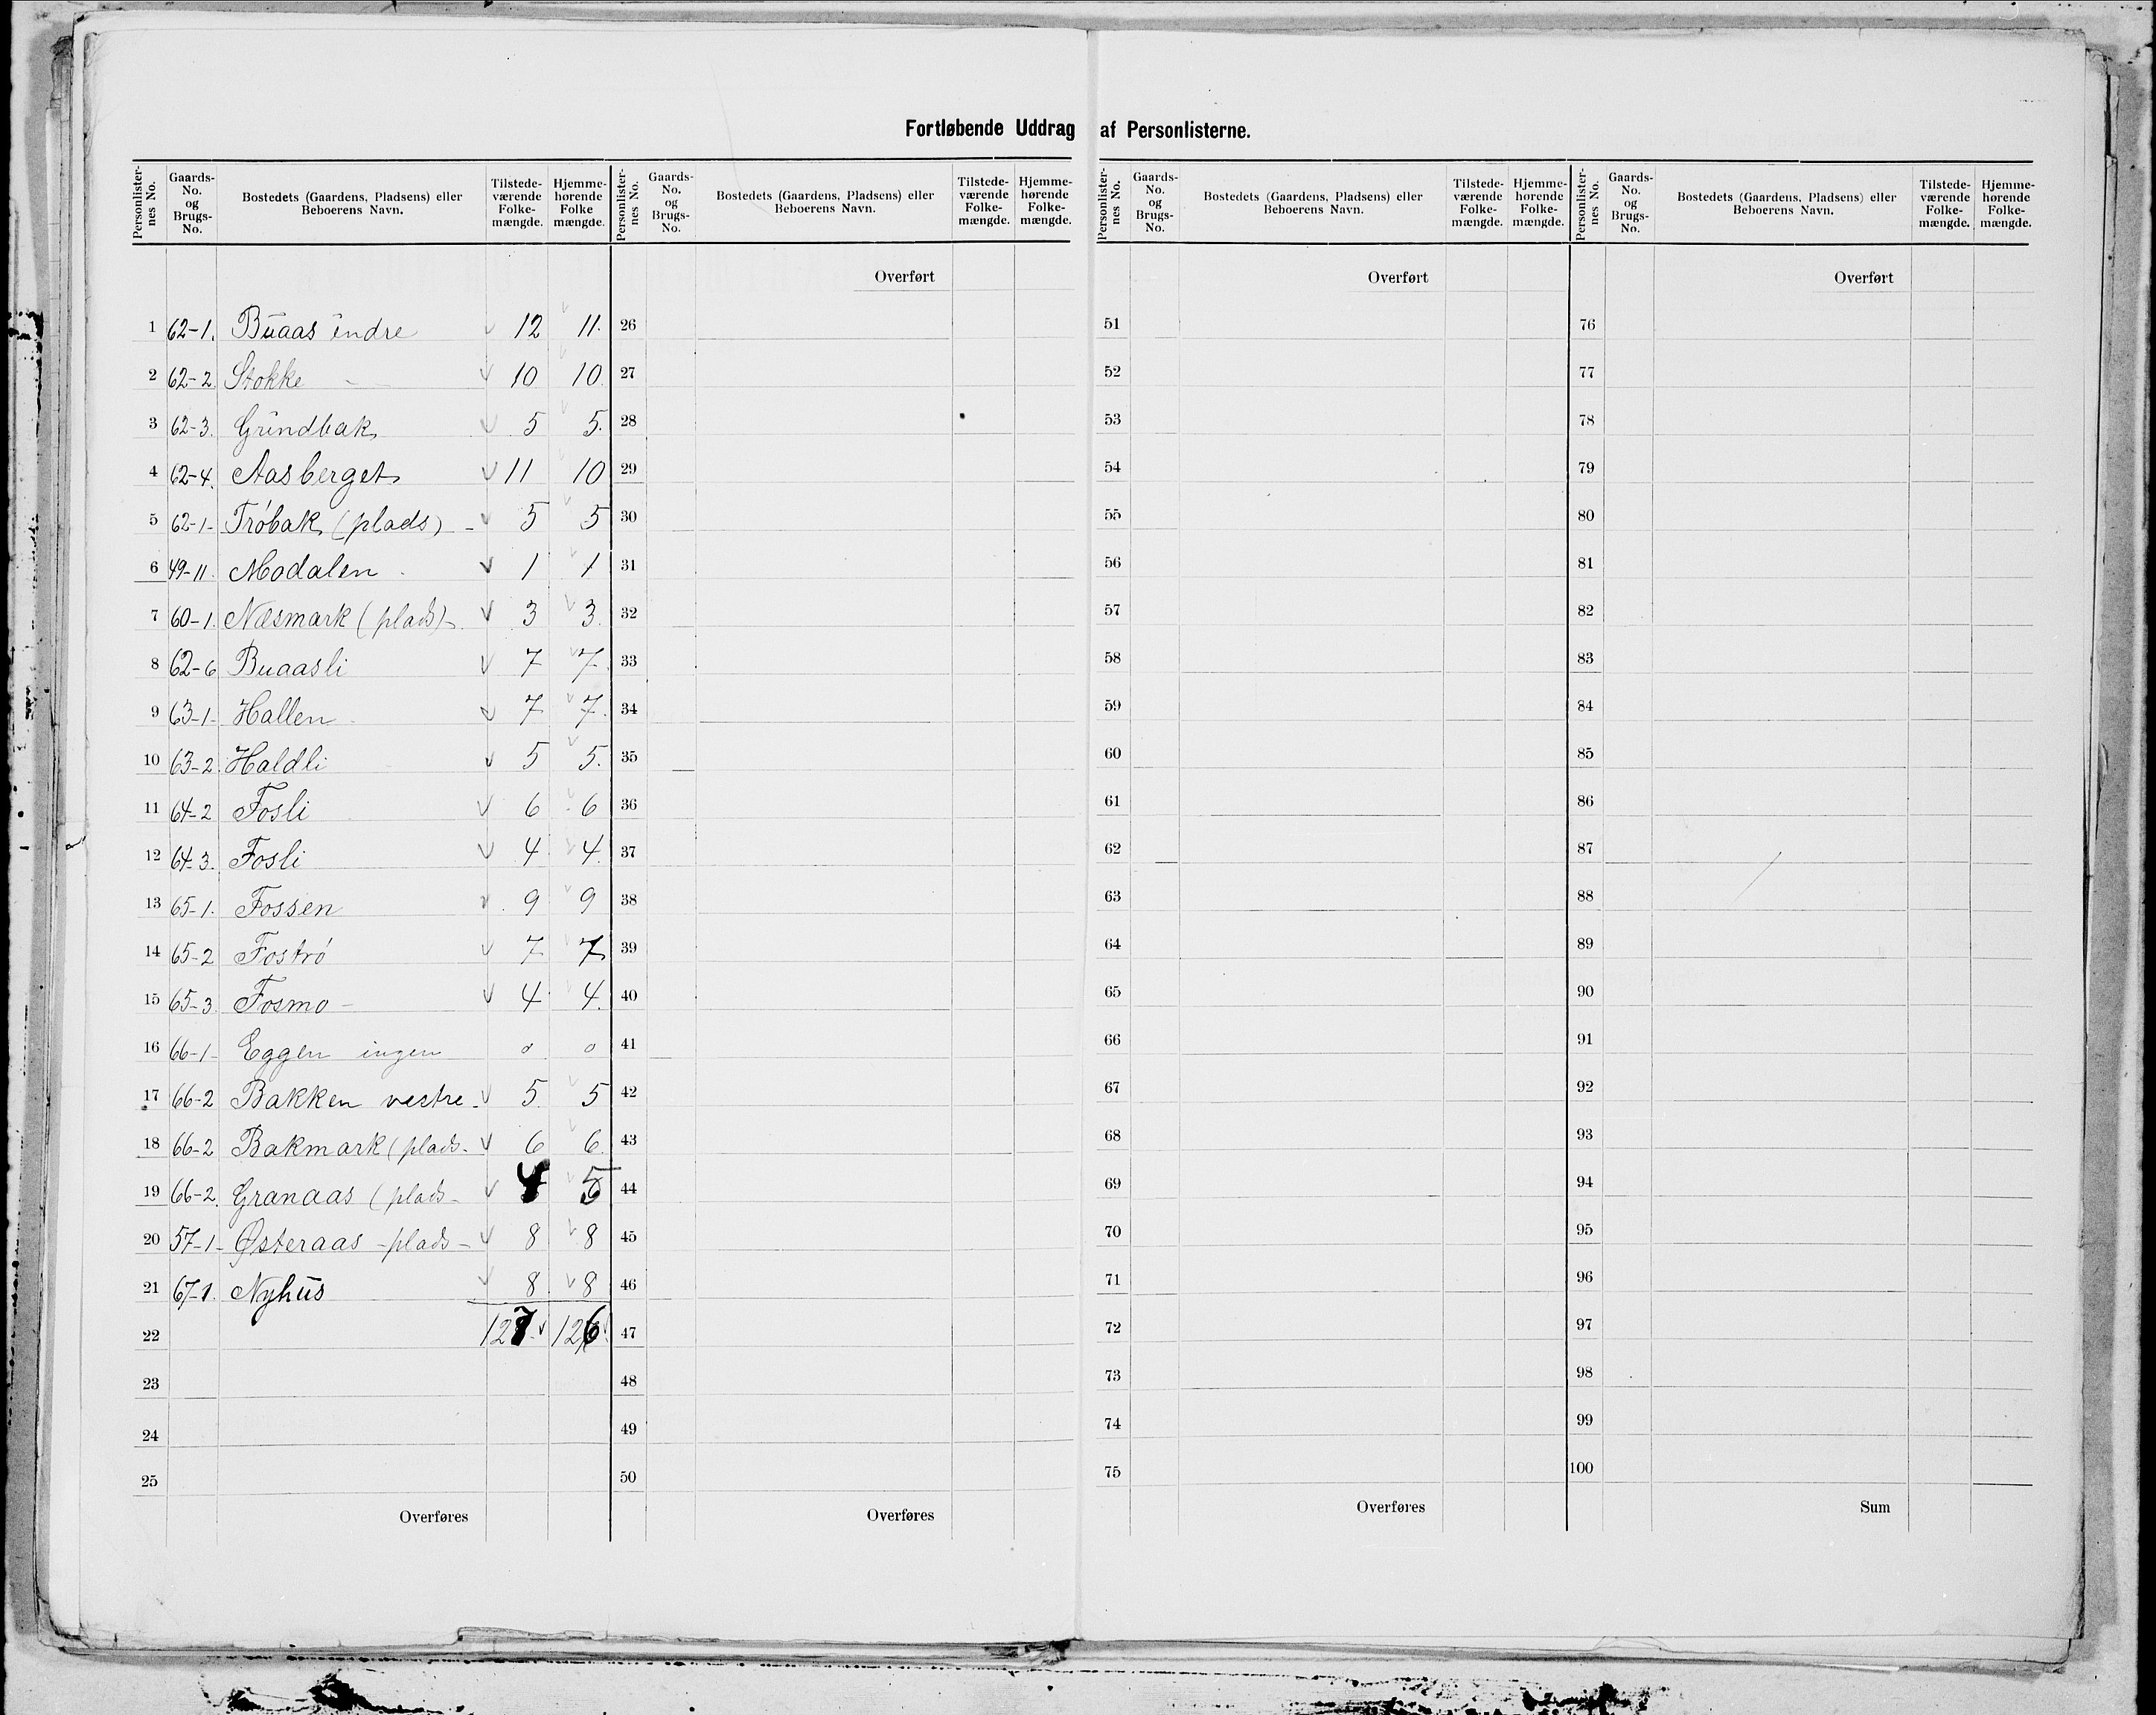 Fortløbende Uddrag af Personlisterne.
Personlister-nes No. Gaards-No. og Brugs-No. Bostedets (Gaardens, Pladsens) eller Beboerens Navn. Tilstede-værende Folke-mængde. Hjemme-hørende Folke mængde.
1 62-1. Buaas indre 12 11.
2 62-2 Stokke 10 10.
3 62-3. Grindbak 5 5.
4 62-4. Aasberget 11 10
5 62-1- Trøbak (plads) - 5 5
6 49-11. Modalen 1 1
7 60-1. Næsmark (plads) 3 3.
8 62-6 Buaasli 7 7.
9 63-1- Hallen 7 7.
10 63-2. Haldli 5 5.
11 64-2 Fosli 6 6
12 64-3. Fosli 4 4.
13 65-1. Fossen 9 9
14 65-2 Fostrø 7 7
15 65-3. Fosmo - 4 4.
16 66-1- Eggen ingen 0 0
17 66-2 Bakken vestre - 5. 5
18 66-2 Bakmark (plads - 6 6.
19 66-2. Granaas (plads - 4 5
20 57-1- Østeraas - plads - 8 8
21 67-1. Nyhus 8 8
22 127. 126
23
24
25
Overføres
Personlister-nes No. Gaards-No. og Brugs-No. Bostedets (Gaardens, Pladsens) eller Beboerens Navn. Tilstede-værende Folke-mængde. Hjemme-hørende Folke-mængde.
Overført
26
27
28
29
30
31
32
33
34
35
36
37
38
39
40
41
42
43
44
45
46
47
48
49
50
Overføres
Personlister-nes No. Gaards-No. og Brugs-No. Bostedets (Gaardens, Pladsens) eller Beboerens Navn. Tilstede-værende Folke-mængde. Hjemme-hørende Folke-mængde.
Overført
51
52
53
54
55
56
57
58
59
60
61
62
63
64
65
66
67
68
69
70
71
72
73
74
75
Overføres
Personlister-nes No. Gaards-No. og Brugs-No. Bostedets (Gaardens, Pladsens) eller Beboerens Navn. Tilstede-værende Folke-mængde. Hjemme-hørende Folke-mængde.
Overført
76
77
78
79
80
81
82
83
84
85
86
87
88
89
90
91
92
93
94
95
96
97
98
99
100
Sum